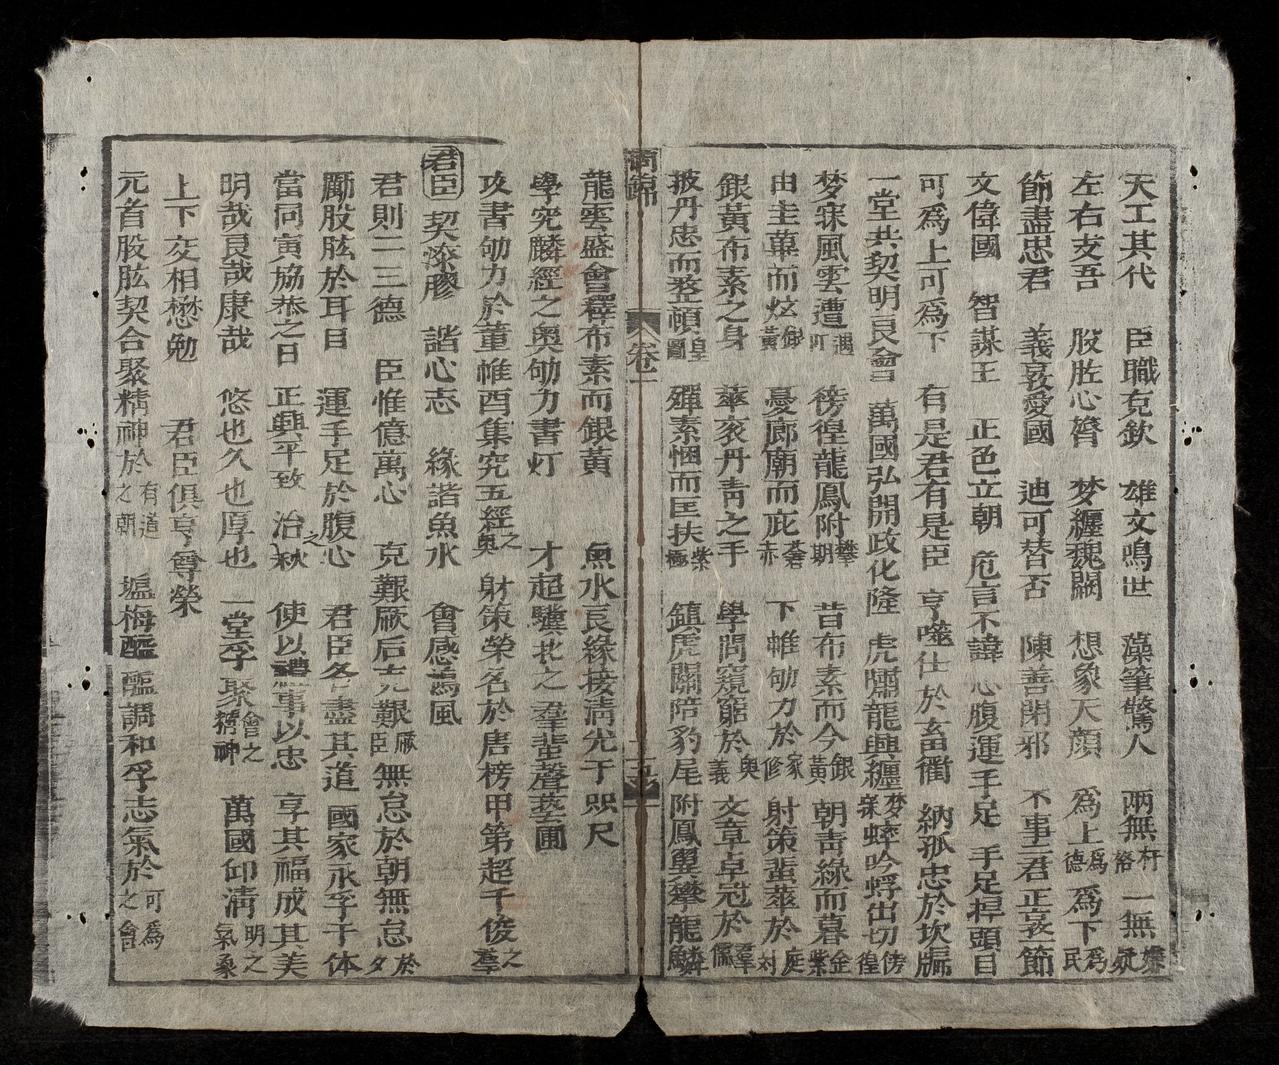 天工其代 臣職克欽 雄文鳴世 藻筆驚人 兩無杆俗 一無嫌疑
左右支吾 股肱心膂 梦纏魏闕 想象天顔 爲上爲德 爲下爲民
節盡忠君 義敦愛國 迪可替否 陳善閉邪 不事二君正敦一節
文偉國 智謀王 正色立朝 危言不諱 心腹運手足 手足捍頭目
可爲上可爲下 有是君有是臣 亨噬仕於畜衢 納孤忠於坎牖
一堂共契明良會 萬國弘開政化隆 虎嘯龍興纏梦寐 蟀吟蜉出切徬徨
梦寐風雲遭遇叮 徬徨龍鳳附攀期 昔布素而今銀黃 朝靑緑而暮金紫
由圭蓽而炫御黃 憂廊廟而庇蒼赤 下帷劬力於家修 射策蜚英於庭対
銀黃布素之身 華衮丹靑之手 學問窺鉛於奥義 文章卓冠於羣儒
披丹忠而整頓皇圖 殫素悃而匡扶紫極 鎮虎關陪豹尾 附鳳翼攀龍鱗
卷一
龍雲盛會釋布素而銀黃 魚水良緣接淸光于咫尺
學究麟經之奥劬力書灯 才起驥北之羣蜚聲藝圃
攻書劬力於董帷酉集究五經之奥 射策榮名於唐榜甲第超千俊之羣
君臣 契漆膠 諧心志 緣諧魚水 會感風
君則二三德 臣惟億萬心 克艱厥后克艱厥臣 無怠於朝無怠於夕
勵股肱於耳目 運手足於腹心 君臣各盡其道 國家永孚于休
當同寅協恭之日 正興平致治之秋 使以禮事以忠 享其福成其美
明哉良哉康哉 悠也久也厚也 一堂孚聚會之精神 萬國仰淸明之氣象
上下交相懋勉 君臣俱享尊榮
元首股肱契合聚精神於有道之朝 塩梅醯醢調和孚志氣於可爲之會